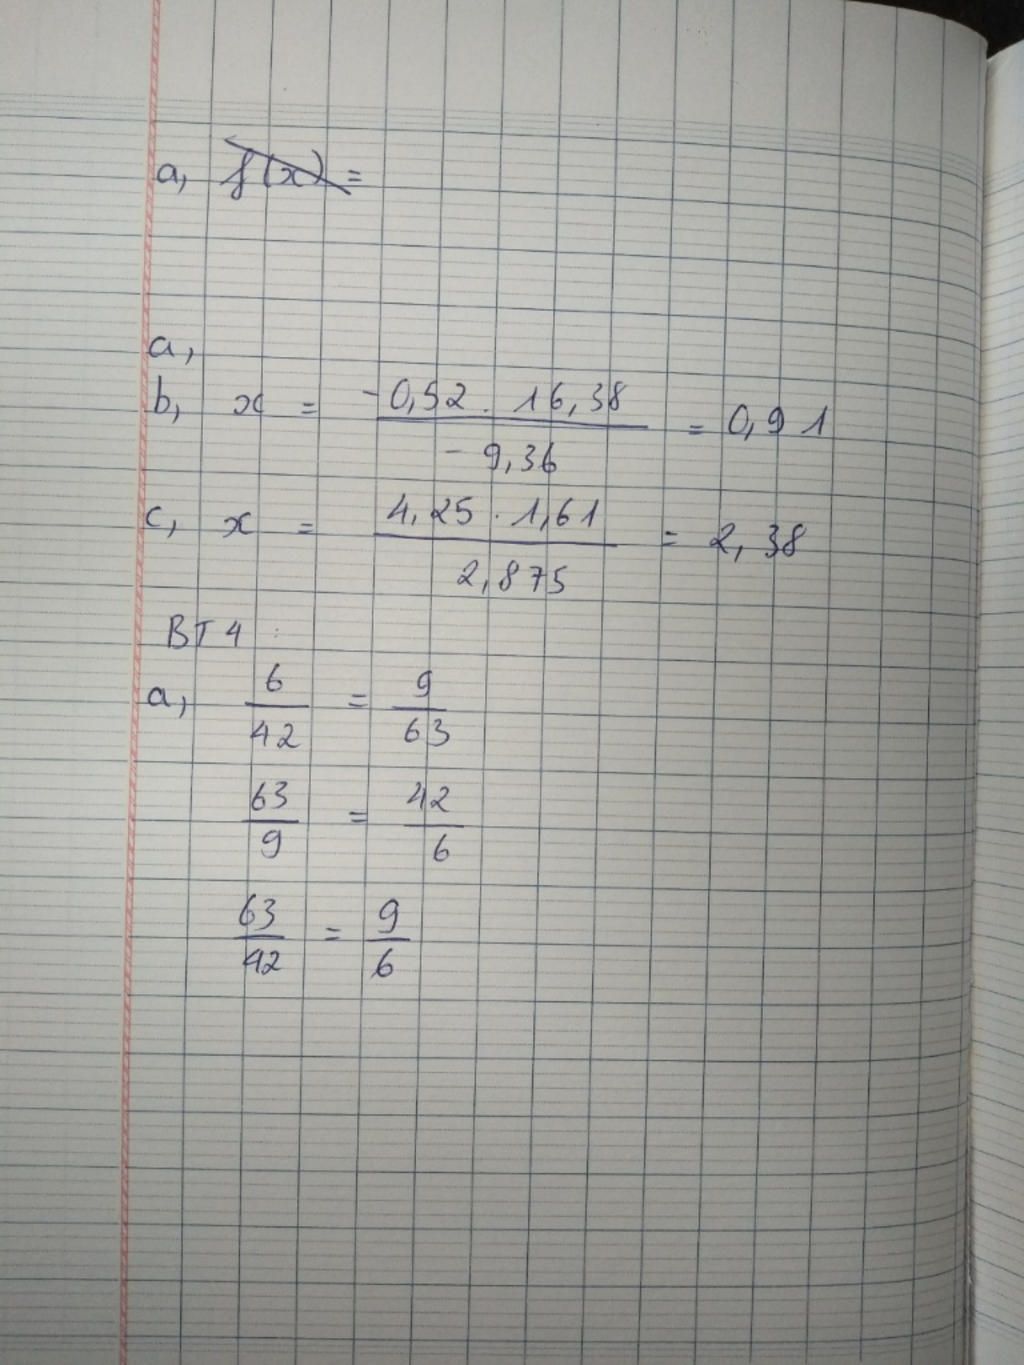 a, f(x) =
a,
b, x = -0,52 . 16,38 / -9,36 = 0,91
c, x = 4,25 . 1,61 / 2,875 = 2,38
BT4 :
a, 6/42 = 9/63
63/9 = 42/6
63/42 = 9/6